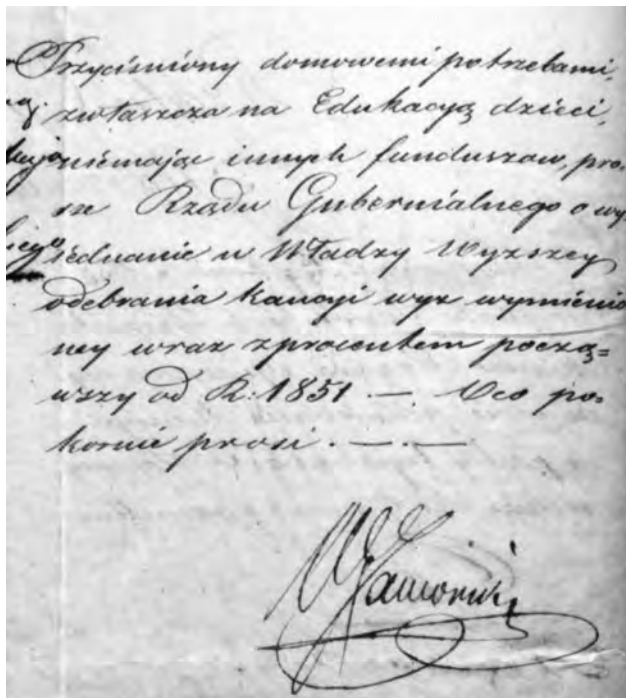 Przyciśniony domowemi potrzebami,
zwłaszcza na Edukacyą dzieci,
niemając innych funduszow, pro-
szę Rządu Gubernialnego o wy
iednanie u Władzy Wyzszey
odebrania kaucyi wyż wymienio
ney wraz z procentem począ=
wszy od R: 1851 — Oco po-
kornie prosi . — . —